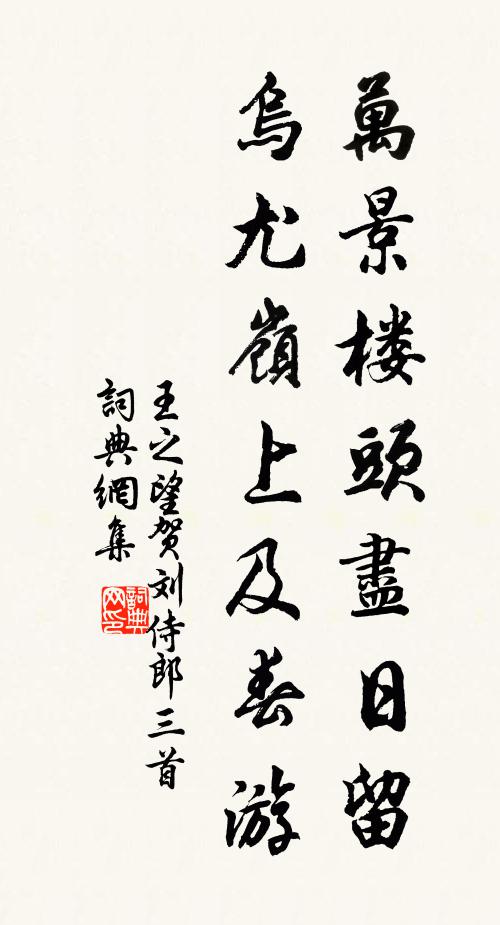 萬景楼頭盡日留
烏尤嶺上及春游
王之望贺刘侍郎三首
詞典網集
詞典网印